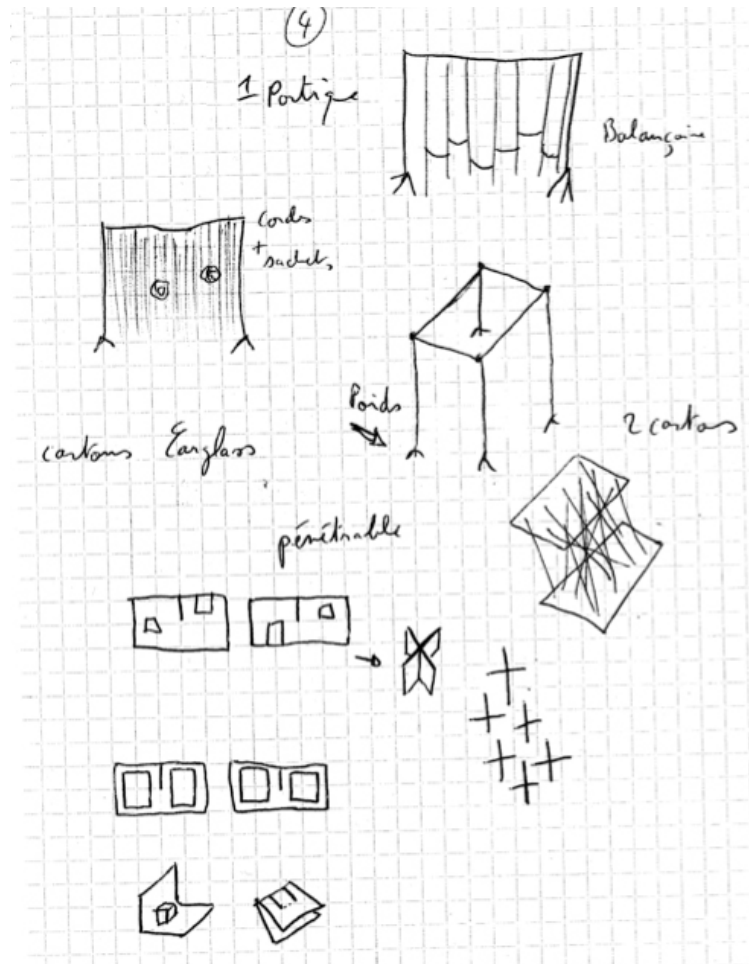 4
1 Portique
Balançoire
cordes
+
sachets
Poids
2 cartons
cartons
pénétrable